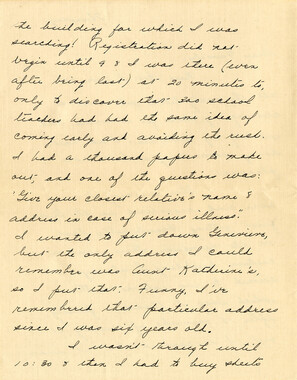 the building for which I was
searching! Registration did not
begin until 9 & I was there (even
after being lost) at 20 minutes to,
only to discover that 200 school
teachers had had the same idea of
coming early and avoiding the rush.
I had a thousand papers to make
out, and one of the questions was:
"Give your closest relative's name &
address in case of serious illness."
I wanted to put down Genevieve,
but the only address I could
remember was Aunt Katherine's,
so I put that. Funny, I've
remembered that particular address
since I was six years old.
I wasn't through until
10:30 & then I had to buy sheets